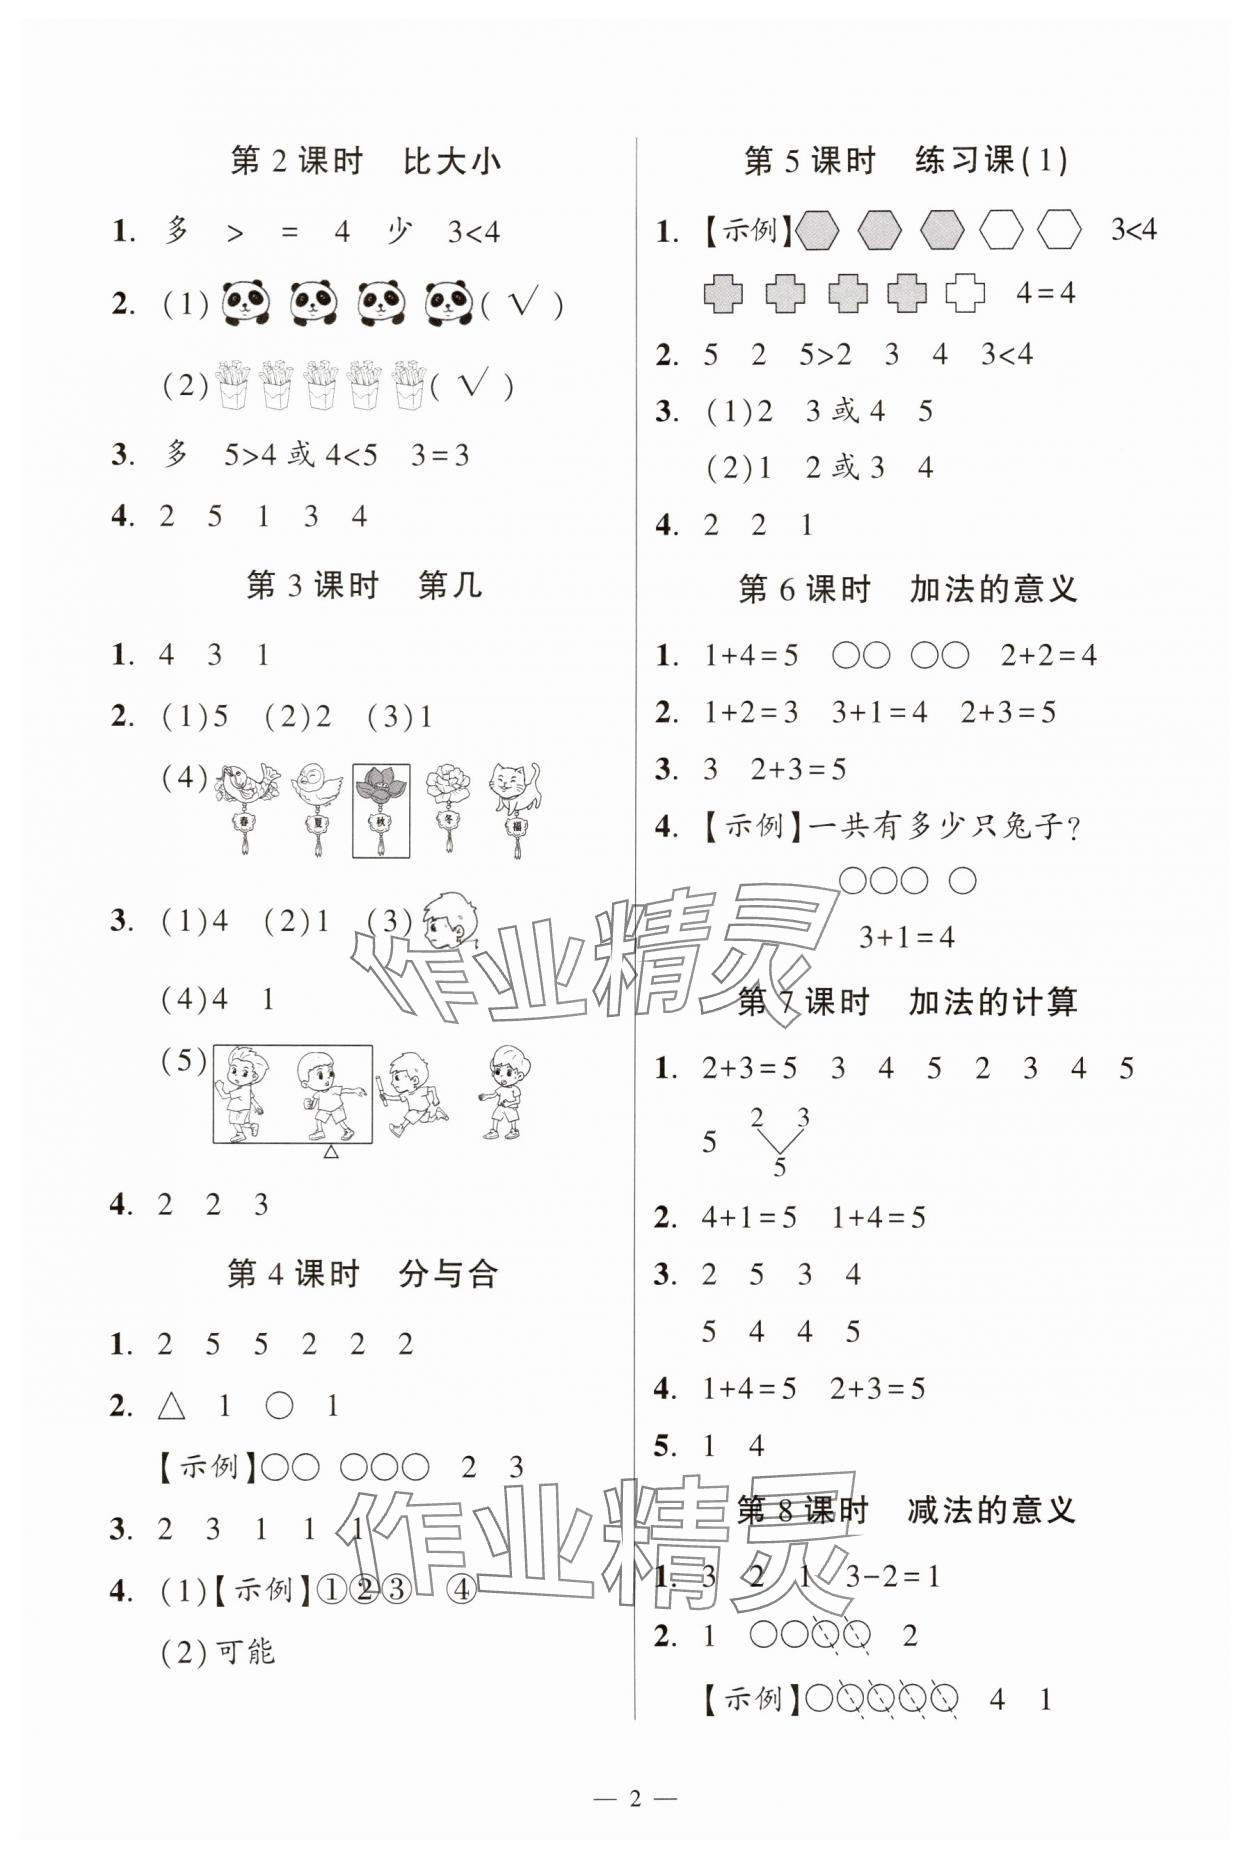 第2课时 比大小
1. 多 > = 4 少 3<4
2. (1) ( √ )
(2) ( √ )
3. 多 5>4或4<5 3=3
4. 2 5 1 3 4
第3课时 第几
1. 4 3 1
2. (1)5 (2)2 (3)1
(4)
春 夏 秋 冬 福
3. (1)4 (2)1 (3)
(4)4 1
(5)
△
4. 2 2 3
第4课时 分与合
1. 2 5 5 2 2 2
2. △ 1 ○ 1
【示例】○○ ○○○ 2 3
3. 2 3 1 1 1
4. (1)【示例】①②③ ④
(2)可能
第5课时 练习课(1)
1. 【示例】 3<4
4=4
2. 5 2 5>2 3 4 3<4
3. (1)2 3或4 5
(2)1 2或3 4
4. 2 2 1
第6课时 加法的意义
1. 1+4=5 ○○ ○○ 2+2=4
2. 1+2=3 3+1=4 2+3=5
3. 3 2+3=5
4. 【示例】一共有多少只兔子?
○○○ ○
3+1=4
第7课时 加法的计算
1. 2+3=5 3 4 5 2 3 4 5
2 3
5
5
2. 4+1=5 1+4=5
3. 2 5 3 4
5 4 4 5
4. 1+4=5 2+3=5
5. 1 4
第8课时 减法的意义
1. 3 2 1 3-2=1
2. 1 ○○○○ 2
【示例】○○○○○ 4 1
— 2 —
作业精灵
作业精灵